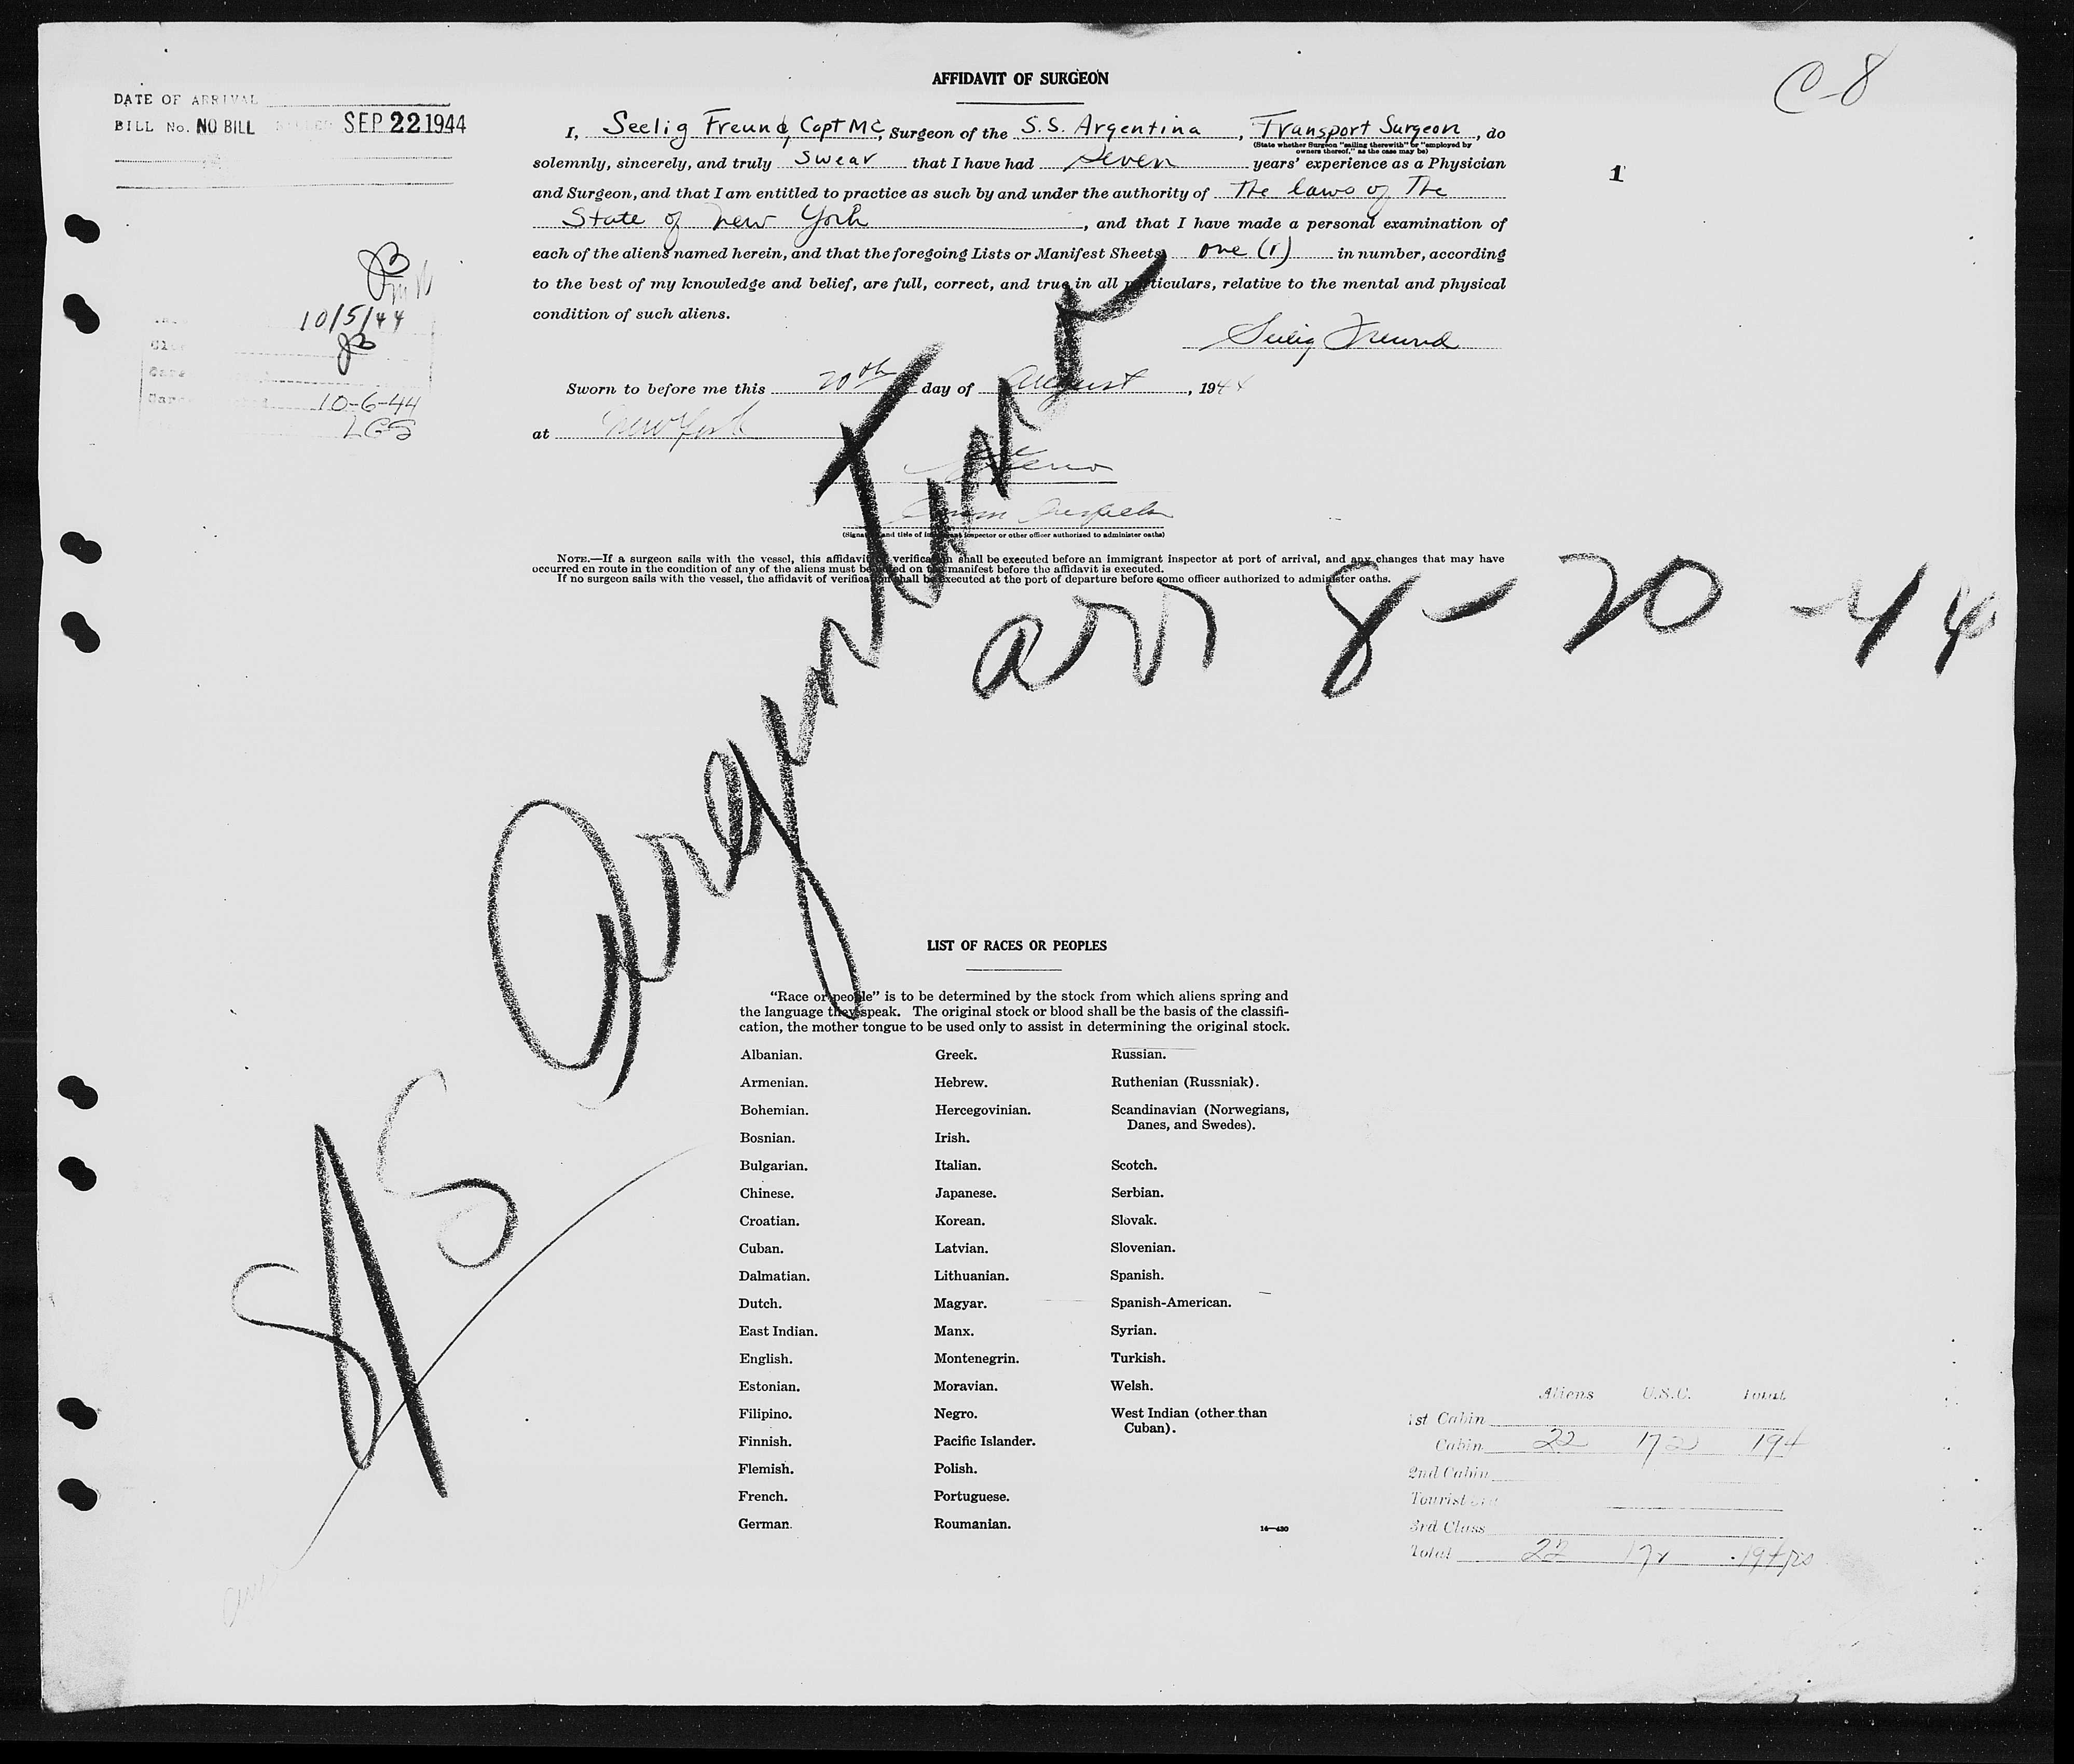 AFFIDAVIT OF SURGEON
C-8
DATE OF ARRIVAL
BILL No. NO BILL SEP 22 1944
I, Seelig Freund, Capt MC, Surgeon of the S.S. Argentina, Transport Surgeon, do
(State whether Surgeon "sailing therewith" or "employed by
owners thereof," as the case may be)
solemnly, sincerely, and truly swear that I have had seven years' experience as a Physician
1
and Surgeon, and that I am entitled to practice as such by and under the authority of The laws of The
State of New York, and that I have made a personal examination of
each of the aliens named herein, and that the foregoing Lists or Manifest Sheets, one (1) in number, according
to the best of my knowledge and belief, are full, correct, and true in all particulars, relative to the mental and physical
condition of such aliens.
10/5/44
10-6-44
LGS
Seelig Freund
Sworn to before me this 20th day of August, 1944
at New York
Immn Inspector
(Signature and title of immigrant inspector or other officer authorized to administer oaths)
NOTE.—If a surgeon sails with the vessel, this affidavit of verification shall be executed before an immigrant inspector at port of arrival, and any changes that may have
occurred en route in the condition of any of the aliens must be noted on the manifest before the affidavit is executed.
If no surgeon sails with the vessel, the affidavit of verification shall be executed at the port of departure before some officer authorized to administer oaths.
S/S Argentina
arr 8-20-44
LIST OF RACES OR PEOPLES
"Race or people" is to be determined by the stock from which aliens spring and
the language they speak. The original stock or blood shall be the basis of the classifi-
cation, the mother tongue to be used only to assist in determining the original stock.
Albanian.
Armenian.
Bohemian.
Bosnian.
Bulgarian.
Chinese.
Croatian.
Cuban.
Dalmatian.
Dutch.
East Indian.
English.
Estonian.
Filipino.
Finnish.
Flemish.
French.
German.
Greek.
Hebrew.
Hercegovinian.
Irish.
Italian.
Japanese.
Korean.
Latvian.
Lithuanian.
Magyar.
Manx.
Montenegrin.
Moravian.
Negro.
Pacific Islander.
Polish.
Portuguese.
Roumanian.
Russian.
Ruthenian (Russniak).
Scandinavian (Norwegians,
Danes, and Swedes).
Scotch.
Serbian.
Slovak.
Slovenian.
Spanish.
Spanish-American.
Syrian.
Turkish.
Welsh.
West Indian (other than
Cuban).
14—430
Aliens U.S.C. Total
1st Cabin
Cabin 22 172 194
2nd Cabin
Tourist
3rd Class
Total 22 172 194